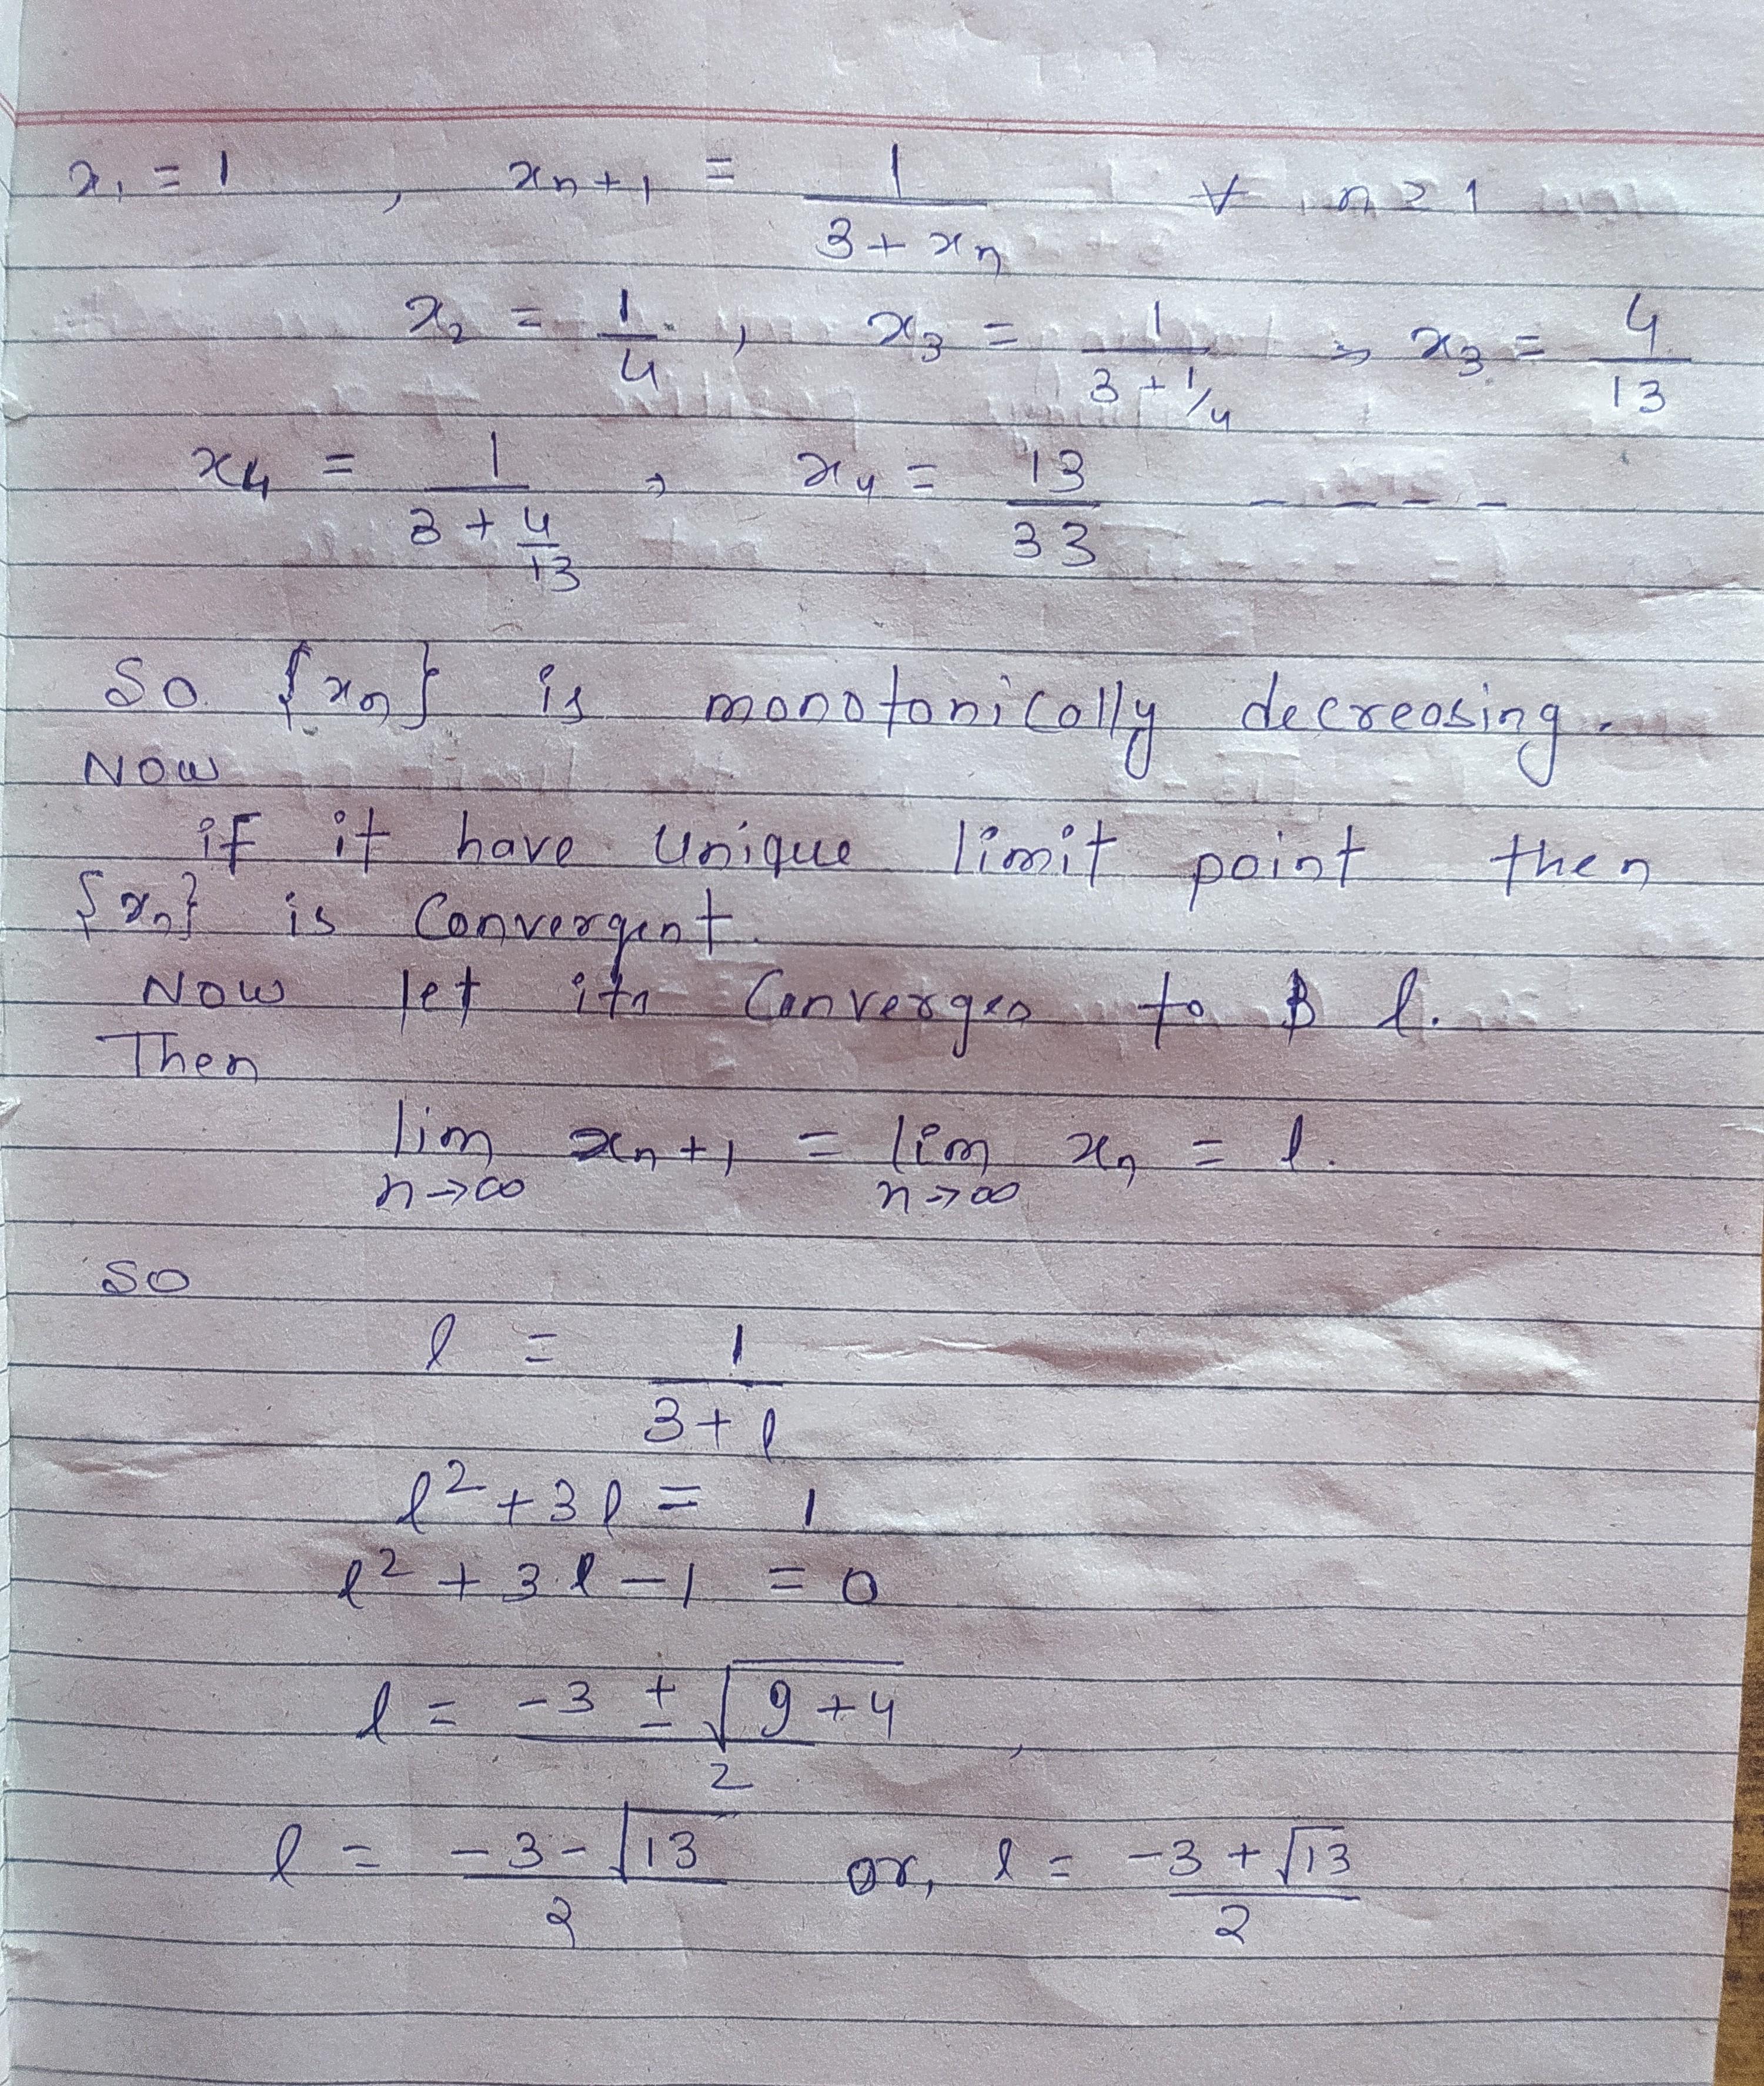 x₁ = 1 , xₙ₊₁ = 1/(3 + xₙ) ∀ n ≥ 1
x₂ = 1/4 , x₃ = 1/(3 + 1/4) , x₃ = 4/13
x₄ = 1/(3 + 4/13) , x₄ = 13/33 - - - - -
So {xₙ} is monotonically decreasing.
Now
if it have unique limit point then
{xₙ} is convergent.
Now let its converges to l.
Then
lim n→∞ xₙ₊₁ = lim n→∞ xₙ = l.
so
l = 1/(3 + l)
l² + 3l = 1
l² + 3l - 1 = 0
l = (-3 ± √(9 + 4))/2 ,
l = (-3 - √13)/2 or, l = (-3 + √13)/2